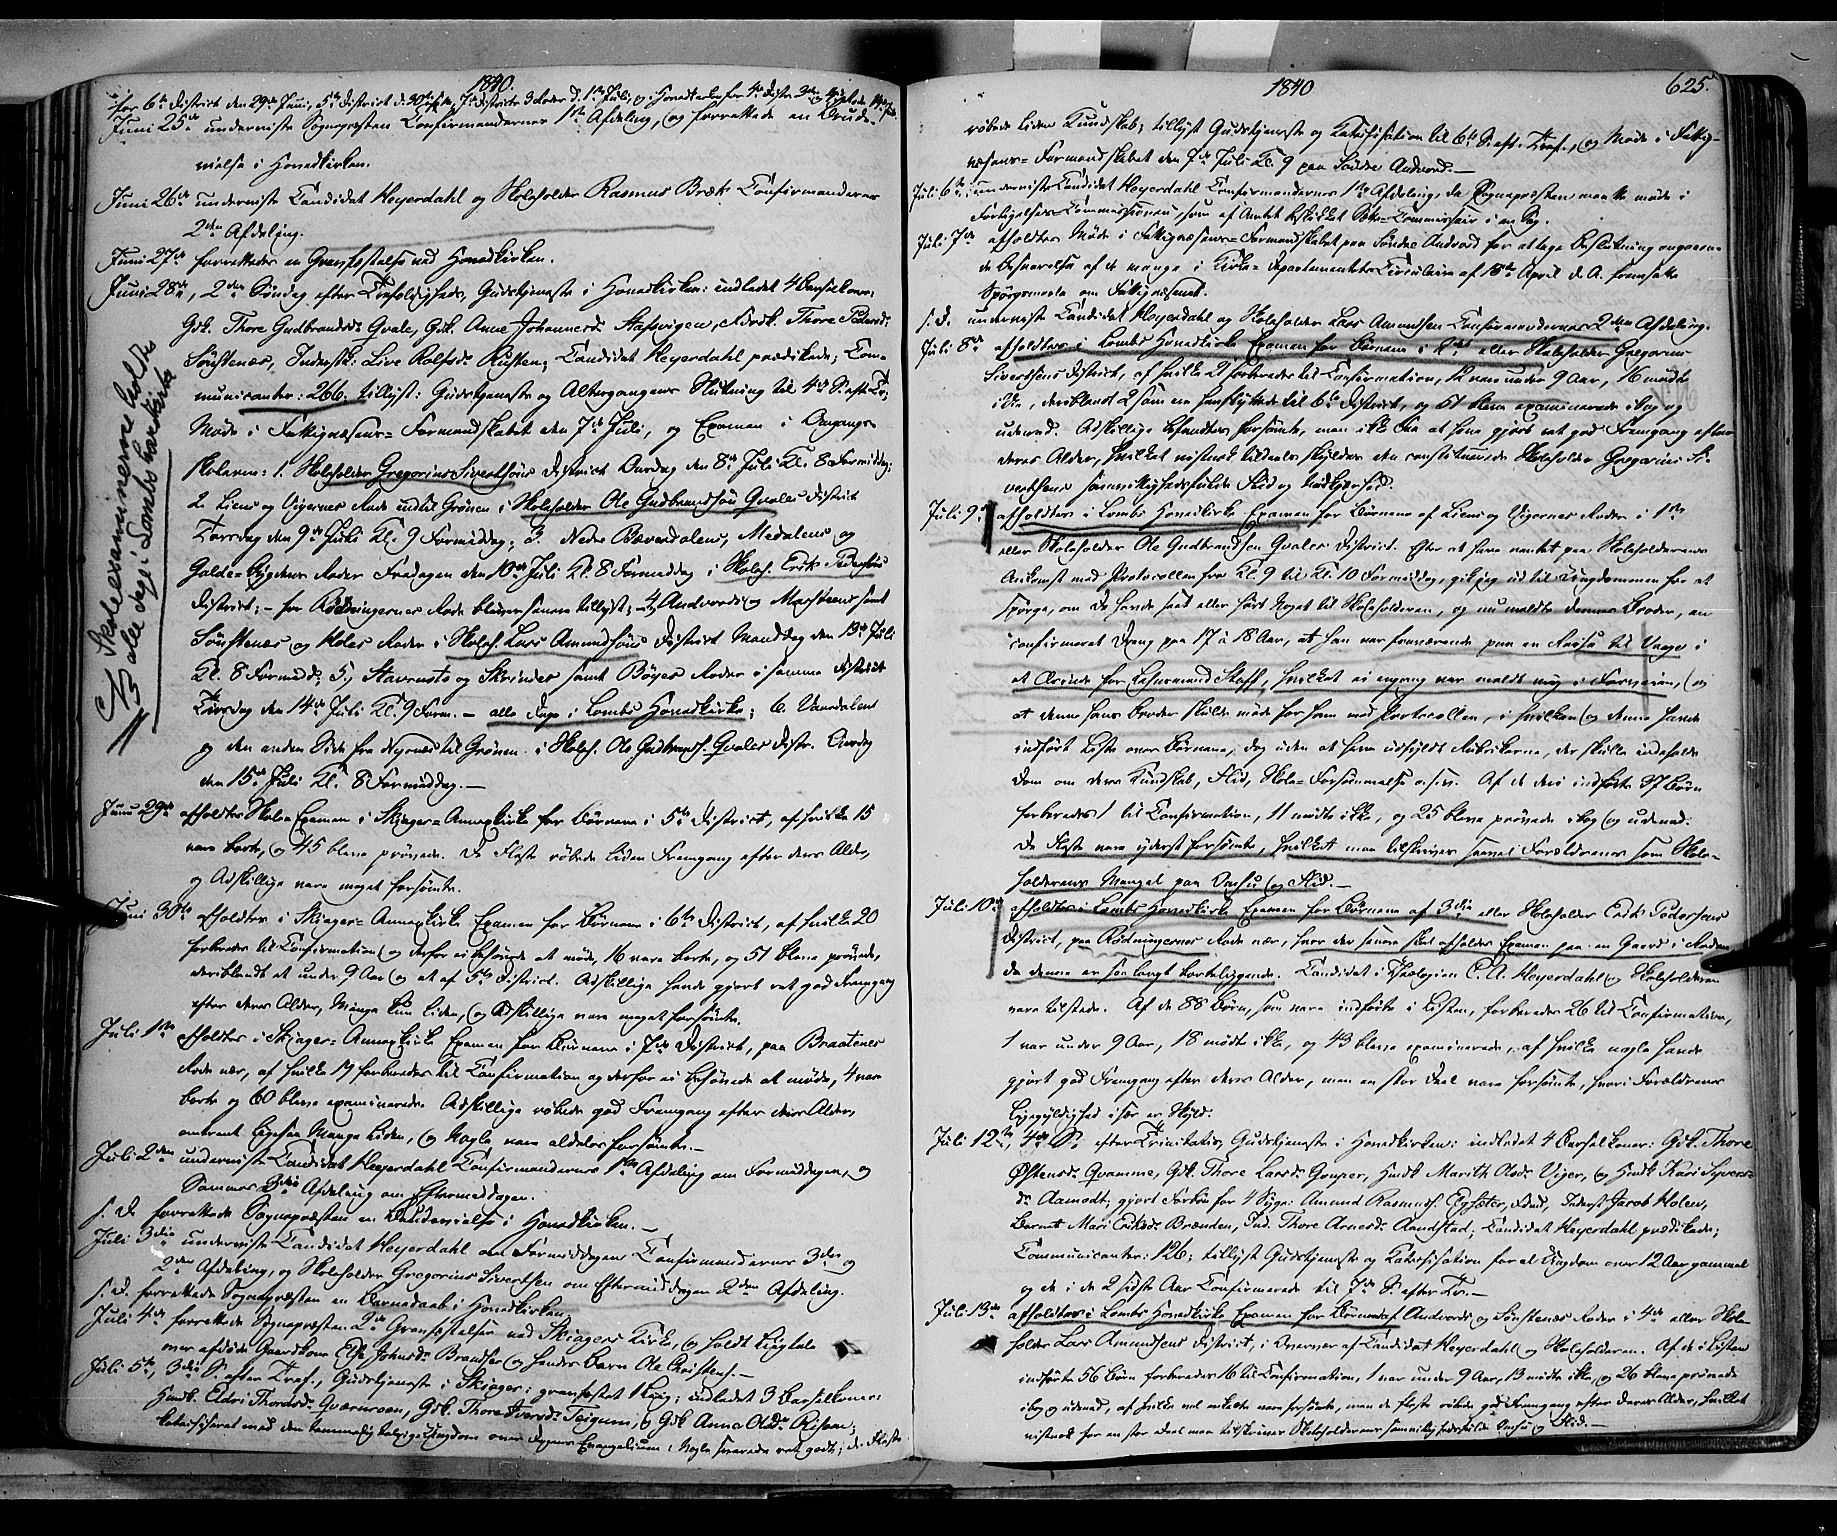 1840.
for 6te District den 29de Juni, 5te District d. 30te, 7de District d. 1ste Juli, i Hovedkirken for 4de
Juni 25de underviste Sognepræsten Confirmandernes 1ste Afdeling, og forrettede en Brude-
vielse i Hovedkirken.
Juni 26de underviste Candidat Heyerdahl og Skoleholder Rasmus Bræk Confirmandernes
2den Afdeling.
Juni 27de forrettedes en Gravfæstelse ved Hovedkirken.
Juni 28de, 2den Søndag efter Trefoldighed, Gudstjeneste i Hovedkirken: indledet 4 Barselkoner:
Gdk. Thore Gudbrandsd. Gvale, Gdk. Anne Johannesd. Thore Pedersd.
Sønstenæs, Inderstk: Live Rolfsd. Rusten; Candidat Heyerdahl prædikede; Com-
municanter: 266. tillyst: Gudstjeneste og Altergangens Slutning til 4de S. eft. Tr.;
Møde i Fattigvæsens-Formandskabet den 7de Juli, og Examen i Omgangs-
skolerne: 1. Skoleholder Gregorius Sivertsøns District Onsdag den 8de Juli Kl. 8 Formiddag;
2. Liens og Vigernes Rode indtil Grönen i Skoleholder Ole Gudbrandsøn Gvales District
Torsdag den 9de Juli Kl. 9 Formiddag; 3. Nedre Bæverdalens, Medalens og
Galde-Bygdens Roder Fredagen den 10de Juli Kl. 8 Formiddag i Skoleh. Erik Pedersøns
District; – for Rødningernes Rode bliver senere tillyst; 4, Andvords og samt
Sønstenæs og Holes Roder i Skoleh. Lars Amundsøns District Mandag den 13de Juli
Kl. 8 Formidd; 5, Stavrusts og Skrindes samt Böyes Roder i samme District
Tirsdag den 14de Juli Kl. 9 Form. – alle Dage i Lombs Hovedkirke; 6. Vaardalens
og den anden Side fra til Grönen i Skoleh. Ole Gudbrands. Gvales Distr. Onsdag
den 15de Juli Kl. 8 Formiddag. –
Skoleexaminerne holdtes
alle dage i Lombs hovkirke
Juni 29de afholdtes Skole-Examen i Skjager-Annexkirke for Børnene i 5te District, af hvilke 15
vare borte, og 45 bleve prøvede. De fleste røbede liden Fremgang efter deres Alder,
og Adskillige vare meget forsømte.
Juni 30te afholdtes i Skjager-Annexkirke Examen for Børnene i 6te District, af hvilke 20
forberedes til Confirmation og derfor ei behøvede at møde, 16 vare borte, og 51 bleve prøvede,
deriblandt et under 9 Aar og et af 5te District. Adskillige havde gjort ret god Fremgang
efter deres Alder, Mange kun liden, og Adskillige vare meget forsømte.
Juli 1ste afholdtes i Skjager-Annexkirke Examen for Børnene i 7de District, paa Braatenes
Rode nær, af hvilke 19 forberedes til Confirmation og derfor ei behøvede at møde, 4 vare
borte og 60 bleve examinerede. Adskillige røbede god Fremgang efter deres Alder,
omtrent ligesaa Mange liden, og Nogle vare aldeles forsømte. –
Juli 2den underviste Candidat Heyerdahl Confirmandernes 1ste Afdeling om Formiddagen, og
Sammes 3die Afdeling om Eftermiddagen.
s. D. forrettede Sognepræsten en Brudevielse i Hovedkirken. –
Juli 3die underviste Candidat Heyerdahl om Formiddagen Confirmandernes 3die og
2den Afdeling, og Skoleholder Gregorius Sivertsen om Eftermiddagen 2den Afdeling.
s. D. forrettede Sognepræsten en Barnedaab i Hovedkirken.
Juli 4de forrettede Sognepræsten 2de Gravfæstelser ved Skjagers Kirke, og holdt Ligtale
over afdøde Gaardkone Johnsd. og hendes Barn Ole Christens. –
Juli 5te, 3die S. efter Tref., Gudstjeneste i Skjager: gravfæstet 1 Liig; indledet 3 Barselkoner:
Husk. Eldri Thorsd. Gvernsen, Gdk. Thore Iversd. Teigum, og Gdk. Anne Olsd. Risom;
katechiseret med den Ungdom over Dagens Evangelium: Nogle svarede ret godt; de Fleste
1840
625.
røbede liden Kundskab; tillyst Gudstjeneste og Katechisation til 6te S. eft. Tref., og Møde i Fattig-
væsens-Formandskabet den 7de Juli Kl. 9 paa Söndre Andvord. –
Juli 6te underviste Candidat Heyerdahl Confirmandernes 1ste Afdeling, da Sognepræsten maatte møde i
Forligelses-Commissionen som af Amtet beskikket Sætte-Commissair i en Sag.
Juli 7de afholdtes Møde i Fattigvæsens-Formandskabet paa Söndre Andvord for at tage Beslutning angaaen-
de Besvarelse af de mange i Kirke-Departementets Circulaire af 18de April d. A. fremsatte
Spørgsmaale om Fattigvæsenet.
s. D. underviste Candidat Heyerdahl og Skoleholder Lars Amundsen Confirmandernes 2den Afdeling.
Juli 8de afholdtes i Lombs Hovedkirke Examen for Børnene i 2det eller Skoleholder Gregorius
Sivertsens District, af hvilke 21 forberedes til Confirmation, 12 vare under 9 Aar, 16 mødte
ikke, deriblandt 2 som ere henflyttede til 6te District, og 51 bleve examinerede i bog og
udenad. Adskillige befandtes forsømte, men ikke Faa at have gjort ret god Fremgang efter
deres Alder, hvilket vistnok tildeels skyldes den constituerede Skoleholder Gregorius Si-
vertsens samvittighedsfulde Flid og
Juli 9de afholdtes i Lombs Hovedkirke Examen for Børnene af Liens og Vigernes Roder i 1ste
eller Skoleholder Ole Gudbrandsen Gvales District. Efter at have ventet paa Skoleholderens
Ankomst med Protocollen fra Kl. 9 til Kl. 10 Formiddag, gik jeg ud til Ungdommen for at
spørge, om De havde seet eller hørt Noget til Skoleholderen, og nu meldte dennes Broder, en
confirmeret Dreng paa 17 à 18 Aar, at han var fraværende paa en Reise til Vaage i
et Ærinde for Lehnsmand Staff, hvilket ei engang var meldt mig i Forveien, og
at denne hans Broder skulde møde for ham med Protocollen, i hvilken og denne havde
indført Liste over Børnene, dog uden at have udfyldt Rubrikerne, der skulle indeholde
Dom om deres Kundskab, Flid, Skole-Forsømmelse o. s. v. Af de deri indførte 37 Børn
forberedes 1 til Confirmation, 11 mødte ikke, og 25 bleve prøvede i bog og udenad.
De fleste vare yderst forsømte, hvilket maa tilskrives saavel Forældrenes som Skole-
holderens Mangel paa Omhu og Flid. –
Juli 10de afholdtes i Lombs Hovedkirke Examen for Børnene af 3die eller Skoleholder Erik Pedersens
District, paa Rødningernes Rode nær, hvor der senere skal afholdes Examen paa en Gaard i Roden
da denne er saa langt bortliggende. Candidat i Theologien C. A. Heyerdahl og Skoleholderen
vare tilstede. Af de 88 Børn, som vare indførte i Listen, forberedes 26 til Confirmation,
1 var under 9 Aar, 18 mødte ikke, og 43 bleve examinerede, af hvilke nogle havde
gjort god Fremgang efter deres Alder, men en stor Deel vare forsømte, hvori Forældrenes
Ligegyldighed især er Skyld.
Juli 12te, 4de S. efter Trinitatis, Gudstjeneste i Hovedkirken: indledet 4 Barselkoner: Gdk. Thore
Østensd. Qvamme, Gdk. Thore Larsd. Husk. Marith Olsd. Viger, og Husk. Kari Siversd.
Aamodt; gjort Forbøn for 4 Syge: Amund Rasmuss. Inderst Jacob Holen,
Barnet Mari Eriksd. Brænden, Ind. Thore Arnesd. Aandstad; Candidat Heyerdahl prædikede;
Communicanter: 126; tillyst Gudstjeneste og Katechisation for al Ungdom over 12 Aar gammel
og de i de 2 sidste Aar Confirmerede til 7de S. efter Tr. –
Juli 13de afholdtes i Lombs Hovedkirke Examen for Børnene af Andvords og Sönstenæs Roder i 4de eller Skole-
holder Lars Amundsens District, i Nærvær af Candidat Heyerdahl og Skoleholderen. Af de i Listen
indførte 56 Børn forberedes 16 til Confirmation, 1 var under 9 Aar, 13 mødte ikke, og 26 bleve prøvede
i bog og udenad, af hvilke vel enkelte vare forsømte, men de fleste røbede god Fremgang efter deres Alder, hvilket
vistnok for en stor Deel maa tilskrives Skoleholderens samvittighedsfulde Omhu og Flid. –